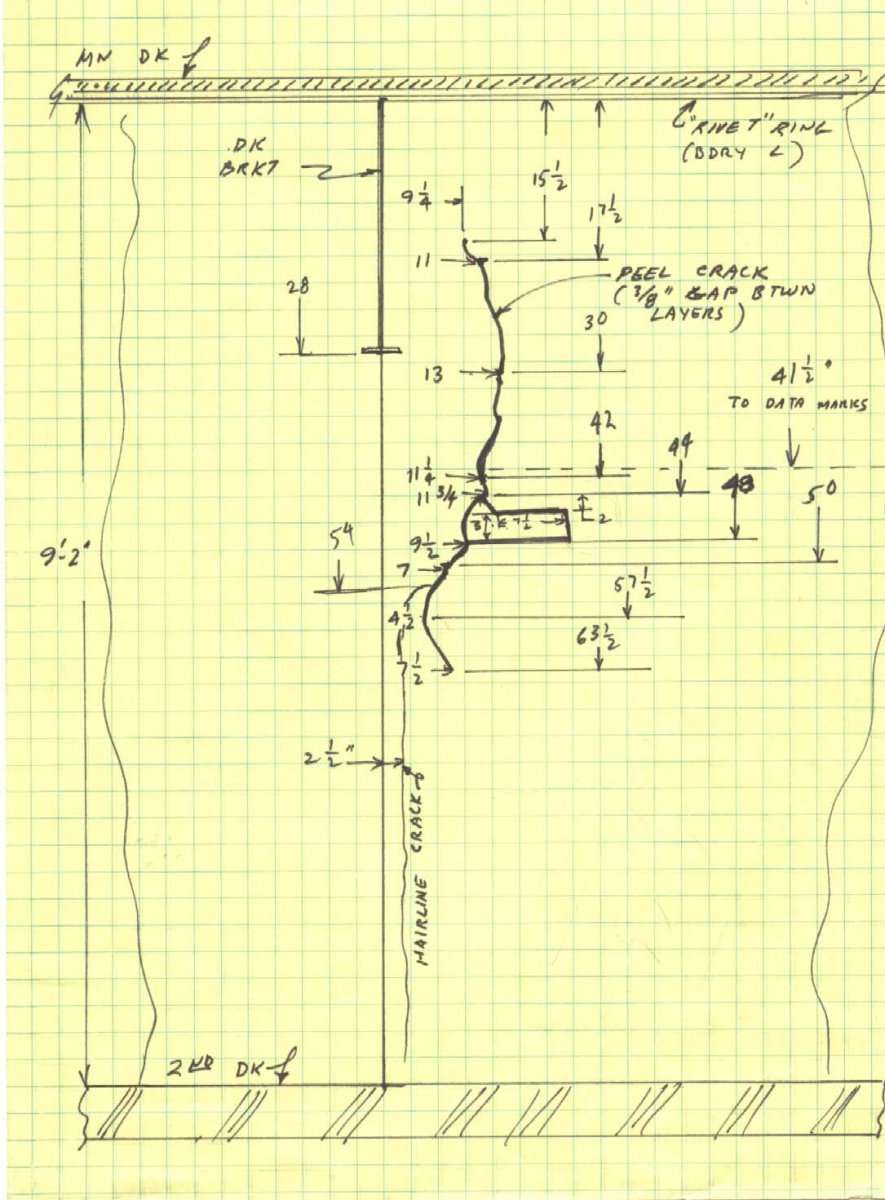 MN DK
"RIVET" RING
(BDRY L)
DK
BRKT
15 1/2
9 1/4
17 1/2
11
PEEL CRACK
(3/8" GAP BTWN
LAYERS)
28
30
13
41 1/2"
TO DATA MARKS
42
44
11 1/4
11 3/4
48
50
2
3
7 1/2
54
9 1/2
9'-2"
7
57 1/2
4 1/2
63 1/2
7 1/2
2 1/2"
HAIRLINE CRACK
2ND DK